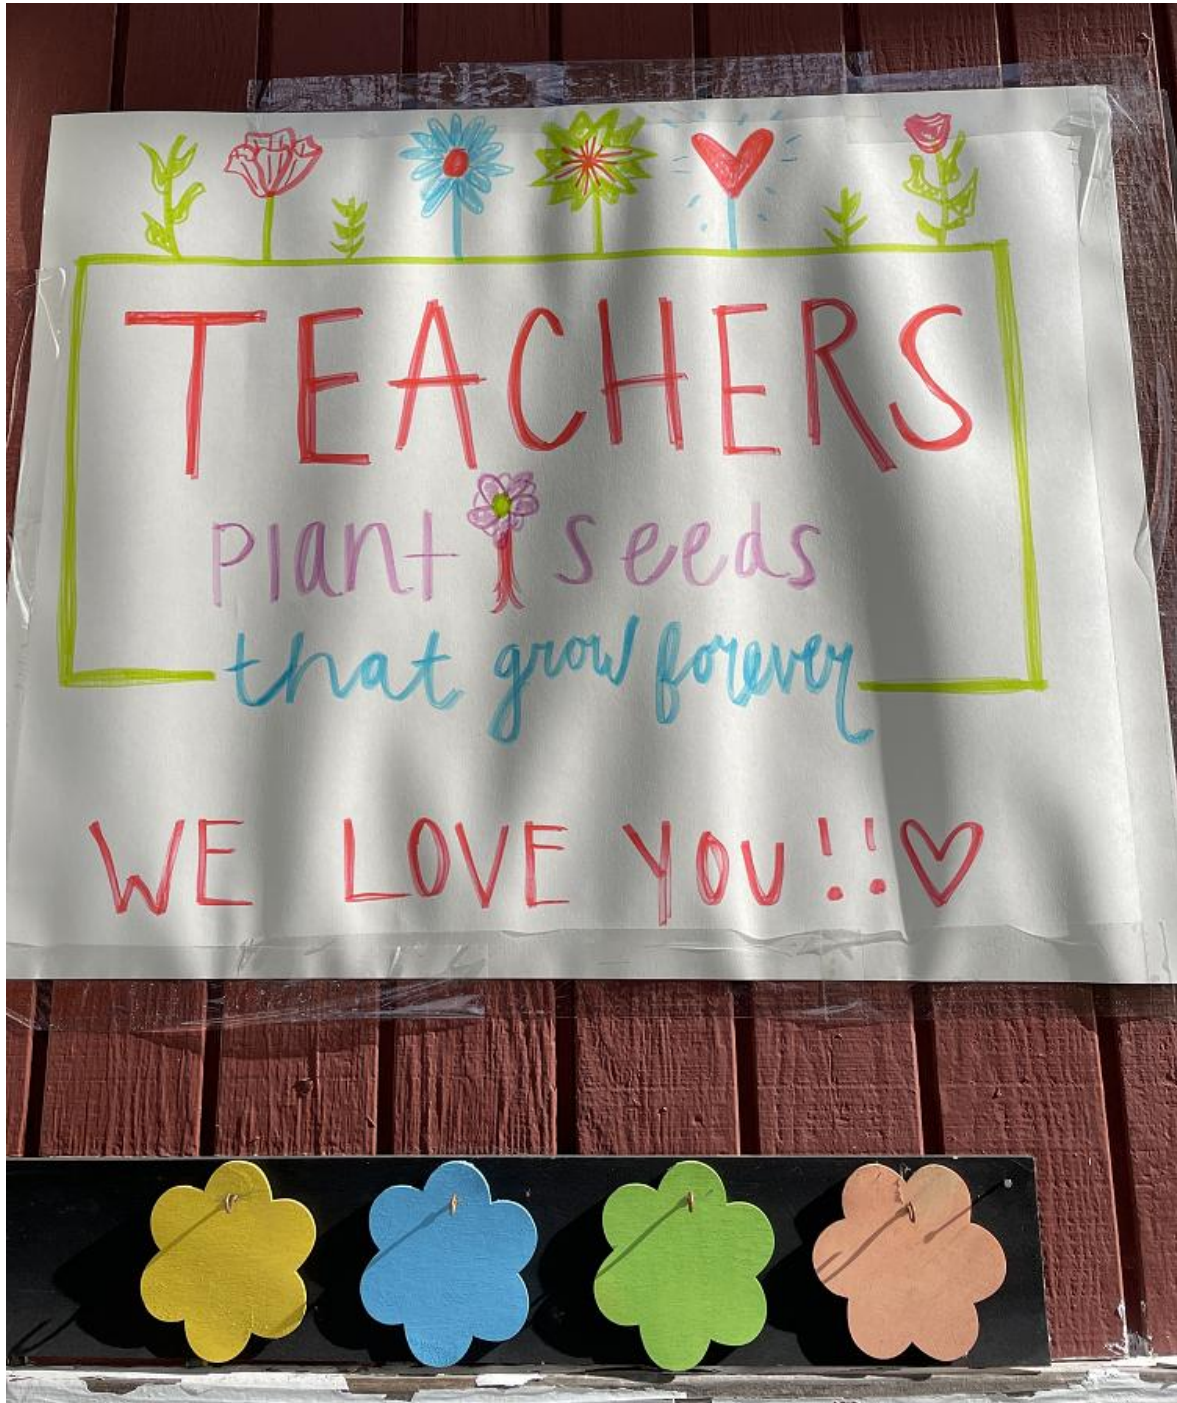 TEACHERS
plant seeds
that grow forever
WE LOVE YOU!!♡